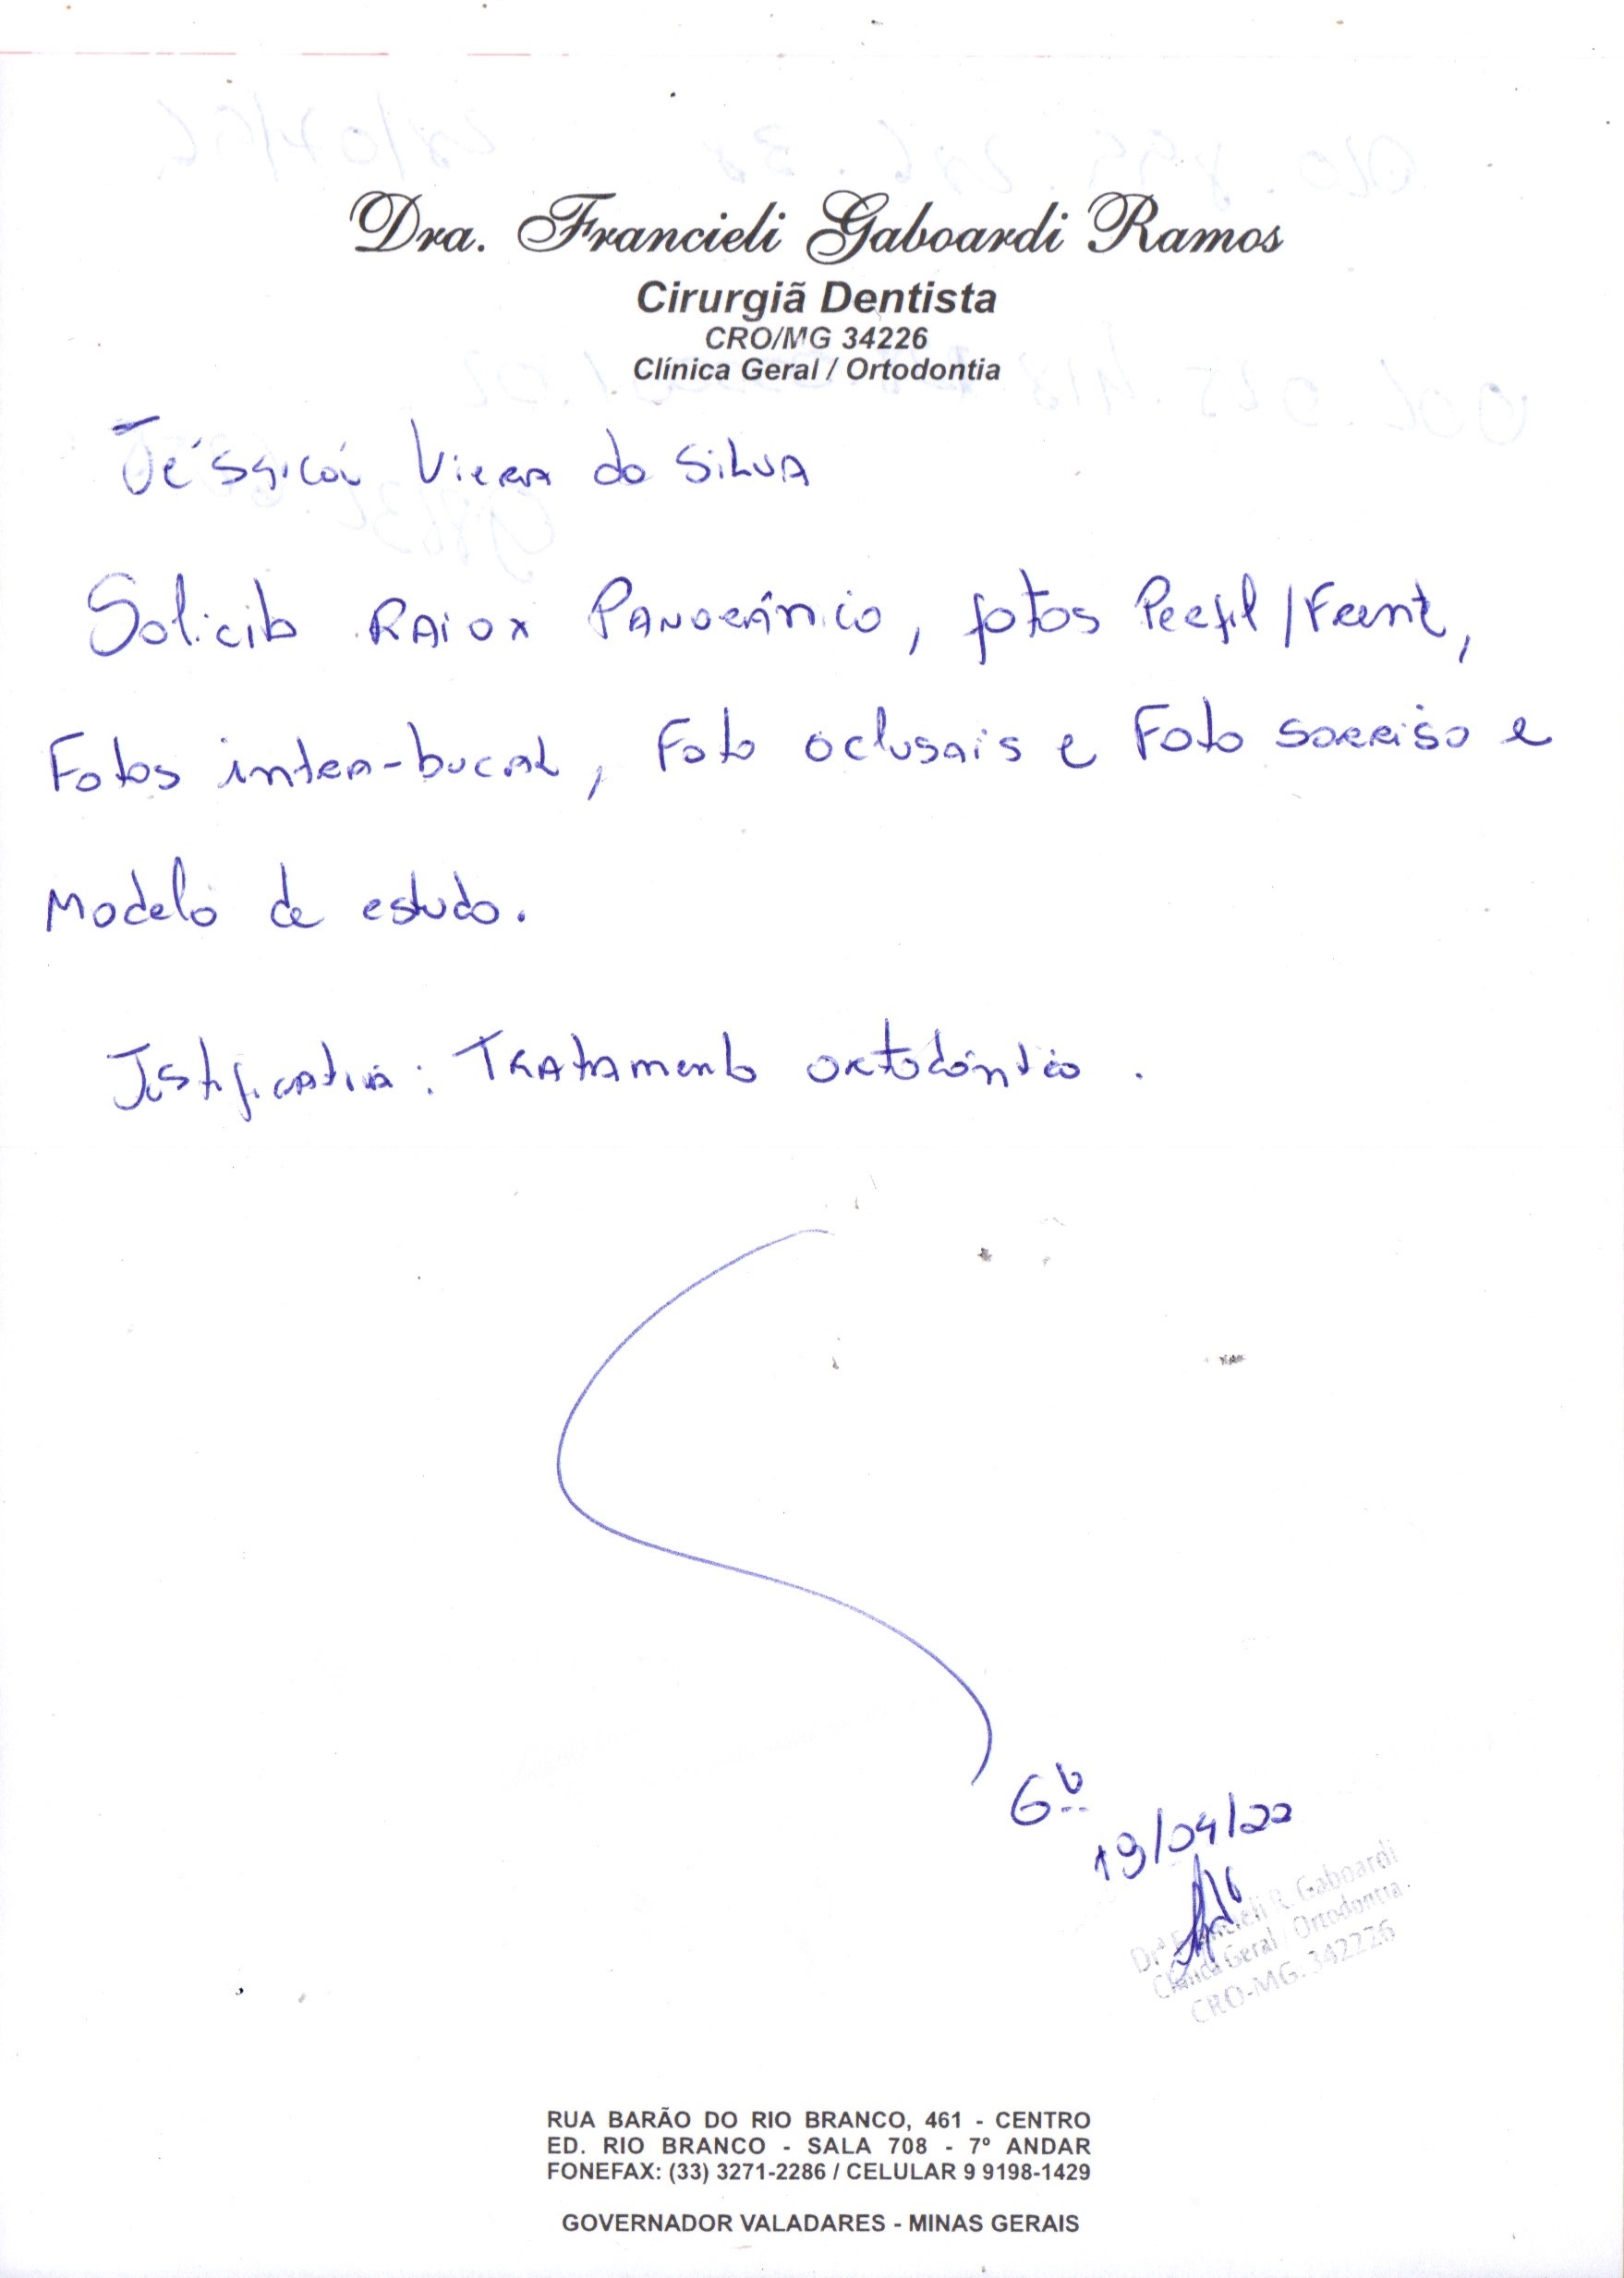 Dra. Francieli Gaboardi Ramos
Cirurgiã Dentista
CRO/MG 34226
Clínica Geral / Ortodontia
Jéssica Viera da Silva
Solicito RAIOX PANORÂMICO, fotos Perfil/Frent,
Fotos intra-bucal, Foto oclusais e Foto sorriso e
Modelo de estudo.
Justificativa: Tratamento ortodôntico.
19/04/22
Drª Francieli R. Gaboardi
Clínica Geral / Ortodontia
CRO-MG. 342226
RUA BARÃO DO RIO BRANCO, 461 - CENTRO
ED. RIO BRANCO - SALA 708 - 7º ANDAR
FONEFAX: (33) 3271-2286 / CELULAR 9 9198-1429
GOVERNADOR VALADARES - MINAS GERAIS